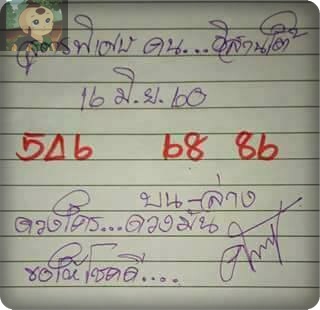 สูตรพิเศษ คน...อีสานใต้
16 มิ.ย. 60
5△6 68 86
บน-ล่าง
ดวงใคร...ดวงมัน
ขอให้โชคดี....